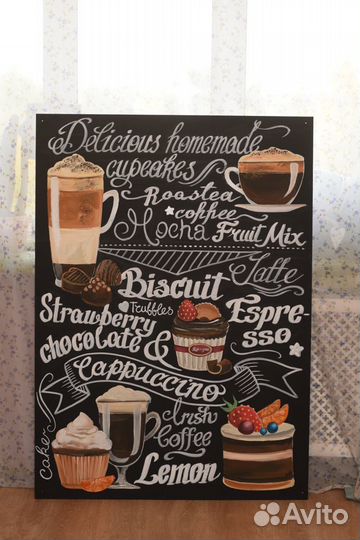 Delicious homemade
cupcakes
Roasted
coffee
Mocha Fruit Mix
Latte
Biscuit
Truffles
Strawberry
chocolate &
Espre-
sso
Cappuccino
Irish
Coffee
Cake
Lemon
Avito